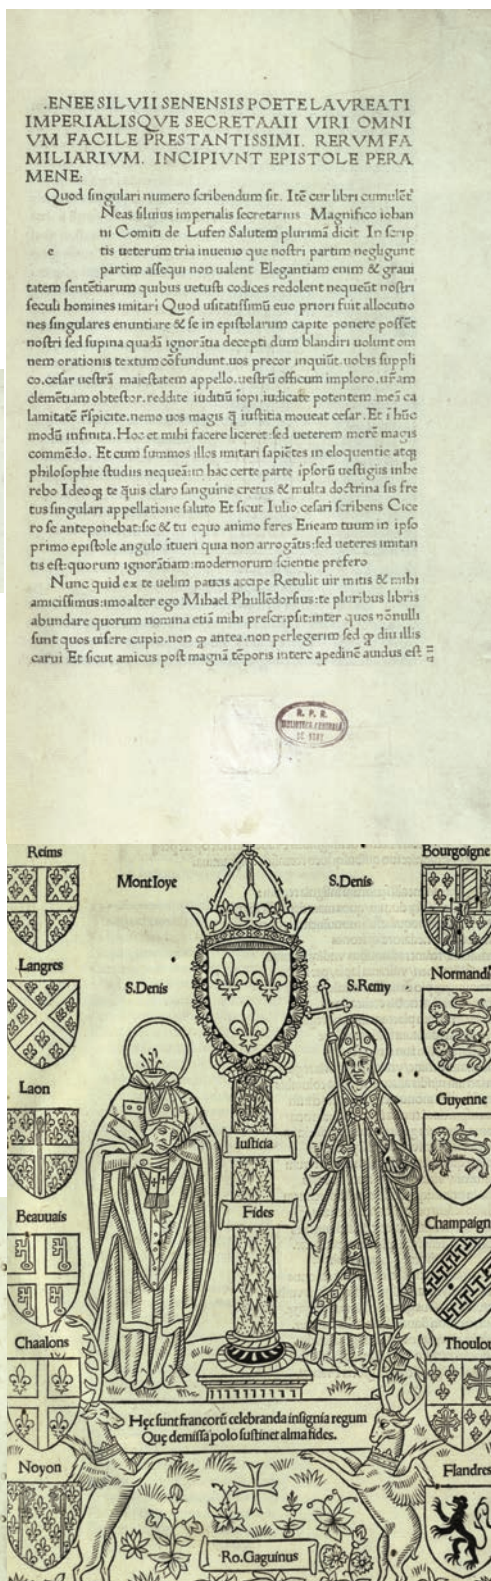 .ENEE SILVII SENENSIS POETE LAVREATI
IMPERIALISQVE SECRETAAII VIRI OMNI
VM FACILE PRESTANTISSIMI. RERVM FA
MILIARIVM. INCIPIVNT EPISTOLE PERA
MENE:
Quod singulari numero scribendum sit. Itē cur libri cumulēt᷑
Neas siluius imperialis secretarius Magnifico iohan
ni Comiti de Lufen Salutem plurimā dicit In scrip
e tis ueterum tria inuenio que nostri partim negligunt
partim assequi non ualent Elegantiam enim & graui
tatem sentētiarum quibus uetusti codices redolent nequeūt nostri
seculi homines imitari Quod usitatissimū euo priori fuit allocutio
nes singulares enuntiare & se in epistolarum capite ponere possēt
nostri sed supina quadā ignorātia decepti dum blandiri uolunt om
nem orationis textum cōfundunt.uos precor inquiūt.uobis suppli
co.cesar uestrā maiestatem appello.uestrū officum imploro.ur̄am
clemētiam obtestor.reddite iuditiū iopi.iudicate potentem.meā ca
lamitatē r̄spicite.nemo uos magis q̄ iustitia moueat cesar. Et ī hūc
modū infinita.Hoc et mihi facere liceret:sed ueterem morē magis
commēdo. Et cum summos illos imitari sapiētes in eloquentie atqꝫ
philosophie studiis nequeā:in hac certe parte ipsorū uestigiis inhe
rebo Ideoqꝫ te q̄uis claro sanguine cretus & multa doctrina sis fre
tus singulari appellatione saluto Et sicut Iulio cesari scribens Cice
ro se anteponebat:sic & tu equo animo feres Eneam tuum in ipso
primo epistole angulo ītueri quia non arrogātis:sed ueteres imitan
tis est:quorum ignorātiam:modernorum scientie prefero
Nunc quid ex te uelim paucis accipe Retulit uir mitis & mihi
amicissimus:imo alter ego Mihael Phullēdorfius:te pluribus libris
abundare quorum nomina etiā mihi prescripsit:inter quos nōnulli
sunt quos uisere cupio.non qꝫ antea.non perlegerim sed qꝫ diu illis
carui Et sicut amicus post magnā tēporis interc apedinē auidus est
R. P. R.
BIBLIOTECA CENTRALA
DE STAT
Reims
MontIoye
S.Denis
Bourgoigne
Langres
S.Denis
S.Remy
Normandi
Laon
Guyenne
Iusticia
Fides
Beauuais
Champaign
Chaalons
Thoulou
Hęc sunt francorū celebranda insignia regum
Quę demissa polo sustinet alma fides.
Noyon
Flandres
Ro.Gaguinus